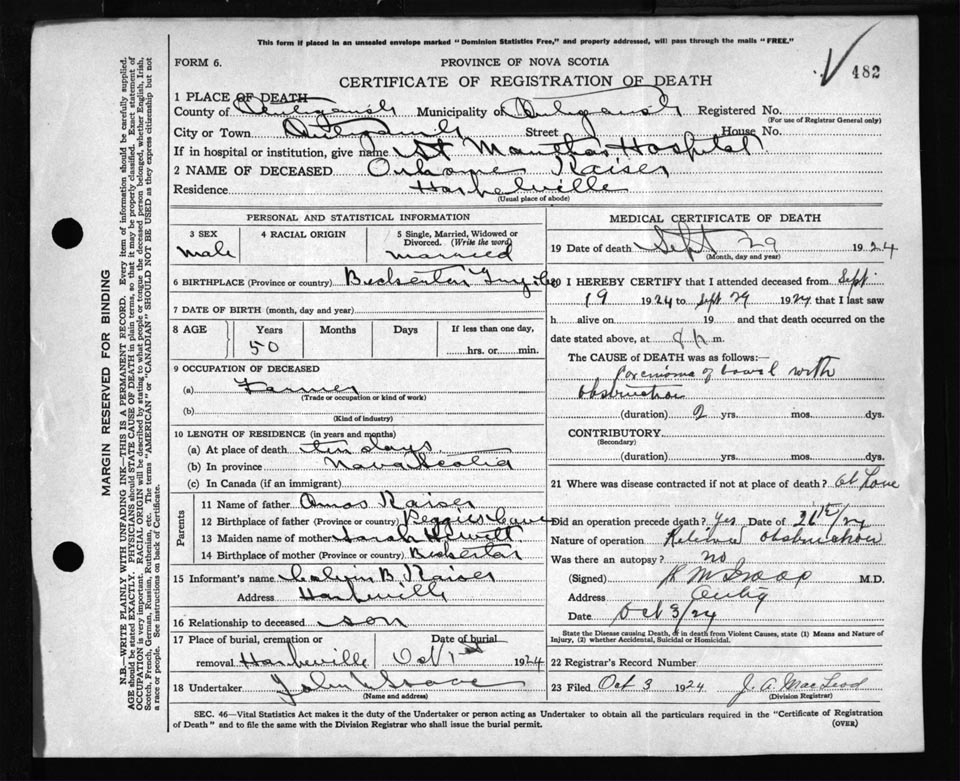 This form if placed in an unsealed envelope marked "Dominion Statistics Free," and properly addressed, will pass through the mails "FREE."
FORM 6.
PROVINCE OF NOVA SCOTIA
482
CERTIFICATE OF REGISTRATION OF DEATH
1 PLACE OF DEATH
County of Antigonish Municipality of Antigonish Registered No.
(For use of Registrar General only)
City or Town Antigonish Street House No.
If in hospital or institution, give name St Marthas Hospital
2 NAME OF DECEASED Osborne Kaiser
Residence
(Usual place of abode)
PERSONAL AND STATISTICAL INFORMATION
3 SEX 4 RACIAL ORIGIN 5 Single, Married, Widowed or Divorced. (Write the word)
male married
6 BIRTHPLACE (Province or country)
7 DATE OF BIRTH (month, day and year)
8 AGE Years Months Days If less than one day,
50 hrs. or min.
9 OCCUPATION OF DECEASED
(a) Farmer
(Trade or occupation or kind of work)
(b)
(Kind of industry)
10 LENGTH OF RESIDENCE (in years and months)
(a) At place of death ten days
(b) In province Nova Scotia
(c) In Canada (if an immigrant)
Parents
11 Name of father Amos Kaiser
12 Birthplace of father (Province or country)
13 Maiden name of mother Sarah Hewitt
14 Birthplace of mother (Province or country)
15 Informant's name Calvin B. Kaiser
Address
16 Relationship to deceased son
17 Place of burial, cremation or Date of burial
removal Oct 1st 1924
18 Undertaker John
(Name and address)
MEDICAL CERTIFICATE OF DEATH
19 Date of death Sept 29 1924
(Month, day and year)
I HEREBY CERTIFY that I attended deceased from Sept
19 1924 to Sept 29 1924 that I last saw
h alive on 19 and that death occurred on
date stated above, at 8 p m.
The CAUSE OF DEATH was as follows:—
of bowel with
obstruction
(duration) 2 yrs. mos. dys.
CONTRIBUTORY
(Secondary)
(duration) yrs. mos. dys.
21 Where was disease contracted if not at place of death? at home
Did an operation precede death? Yes Date of 26th/24
Nature of operation Relieve obstruction
Was there an autopsy? No
(Signed) M.D.
Address Antig
Date Oct 3/24
State the Disease causing Death, or in death from Violent Causes, state (1) Means and Nature of
Injury, (2) whether Accidental, Suicidal or Homicidal.
22 Registrar's Record Number
23 Filed Oct 3 1924 J. A. MacLeod
(Division Registrar)
SEC. 46—Vital Statistics Act makes it the duty of the Undertaker or person acting as Undertaker to obtain all the particulars required in the "Certificate of Registration
of Death" and to file the same with the Division Registrar who shall issue the burial permit.
(OVER)
MARGIN RESERVED FOR BINDING
N.B.—WRITE PLAINLY WITH UNFADING INK—THIS IS A PERMANENT RECORD. Every item of information should be carefully supplied.
AGE should be stated EXACTLY. PHYSICIANS should STATE CAUSE OF DEATH in plain terms, so that it may be properly classified. Exact statement of
OCCUPATION is very important. RACIAL ORIGIN will be described by stating to what people or tongue the deceased person belonged, whether English, Irish,
Scotch, French, German, Russian, Ruthenian, etc. The terms "AMERICAN" or "CANADIAN" SHOULD NOT BE USED as they express citizenship but not
a race or people. See instructions on back of Certificate.